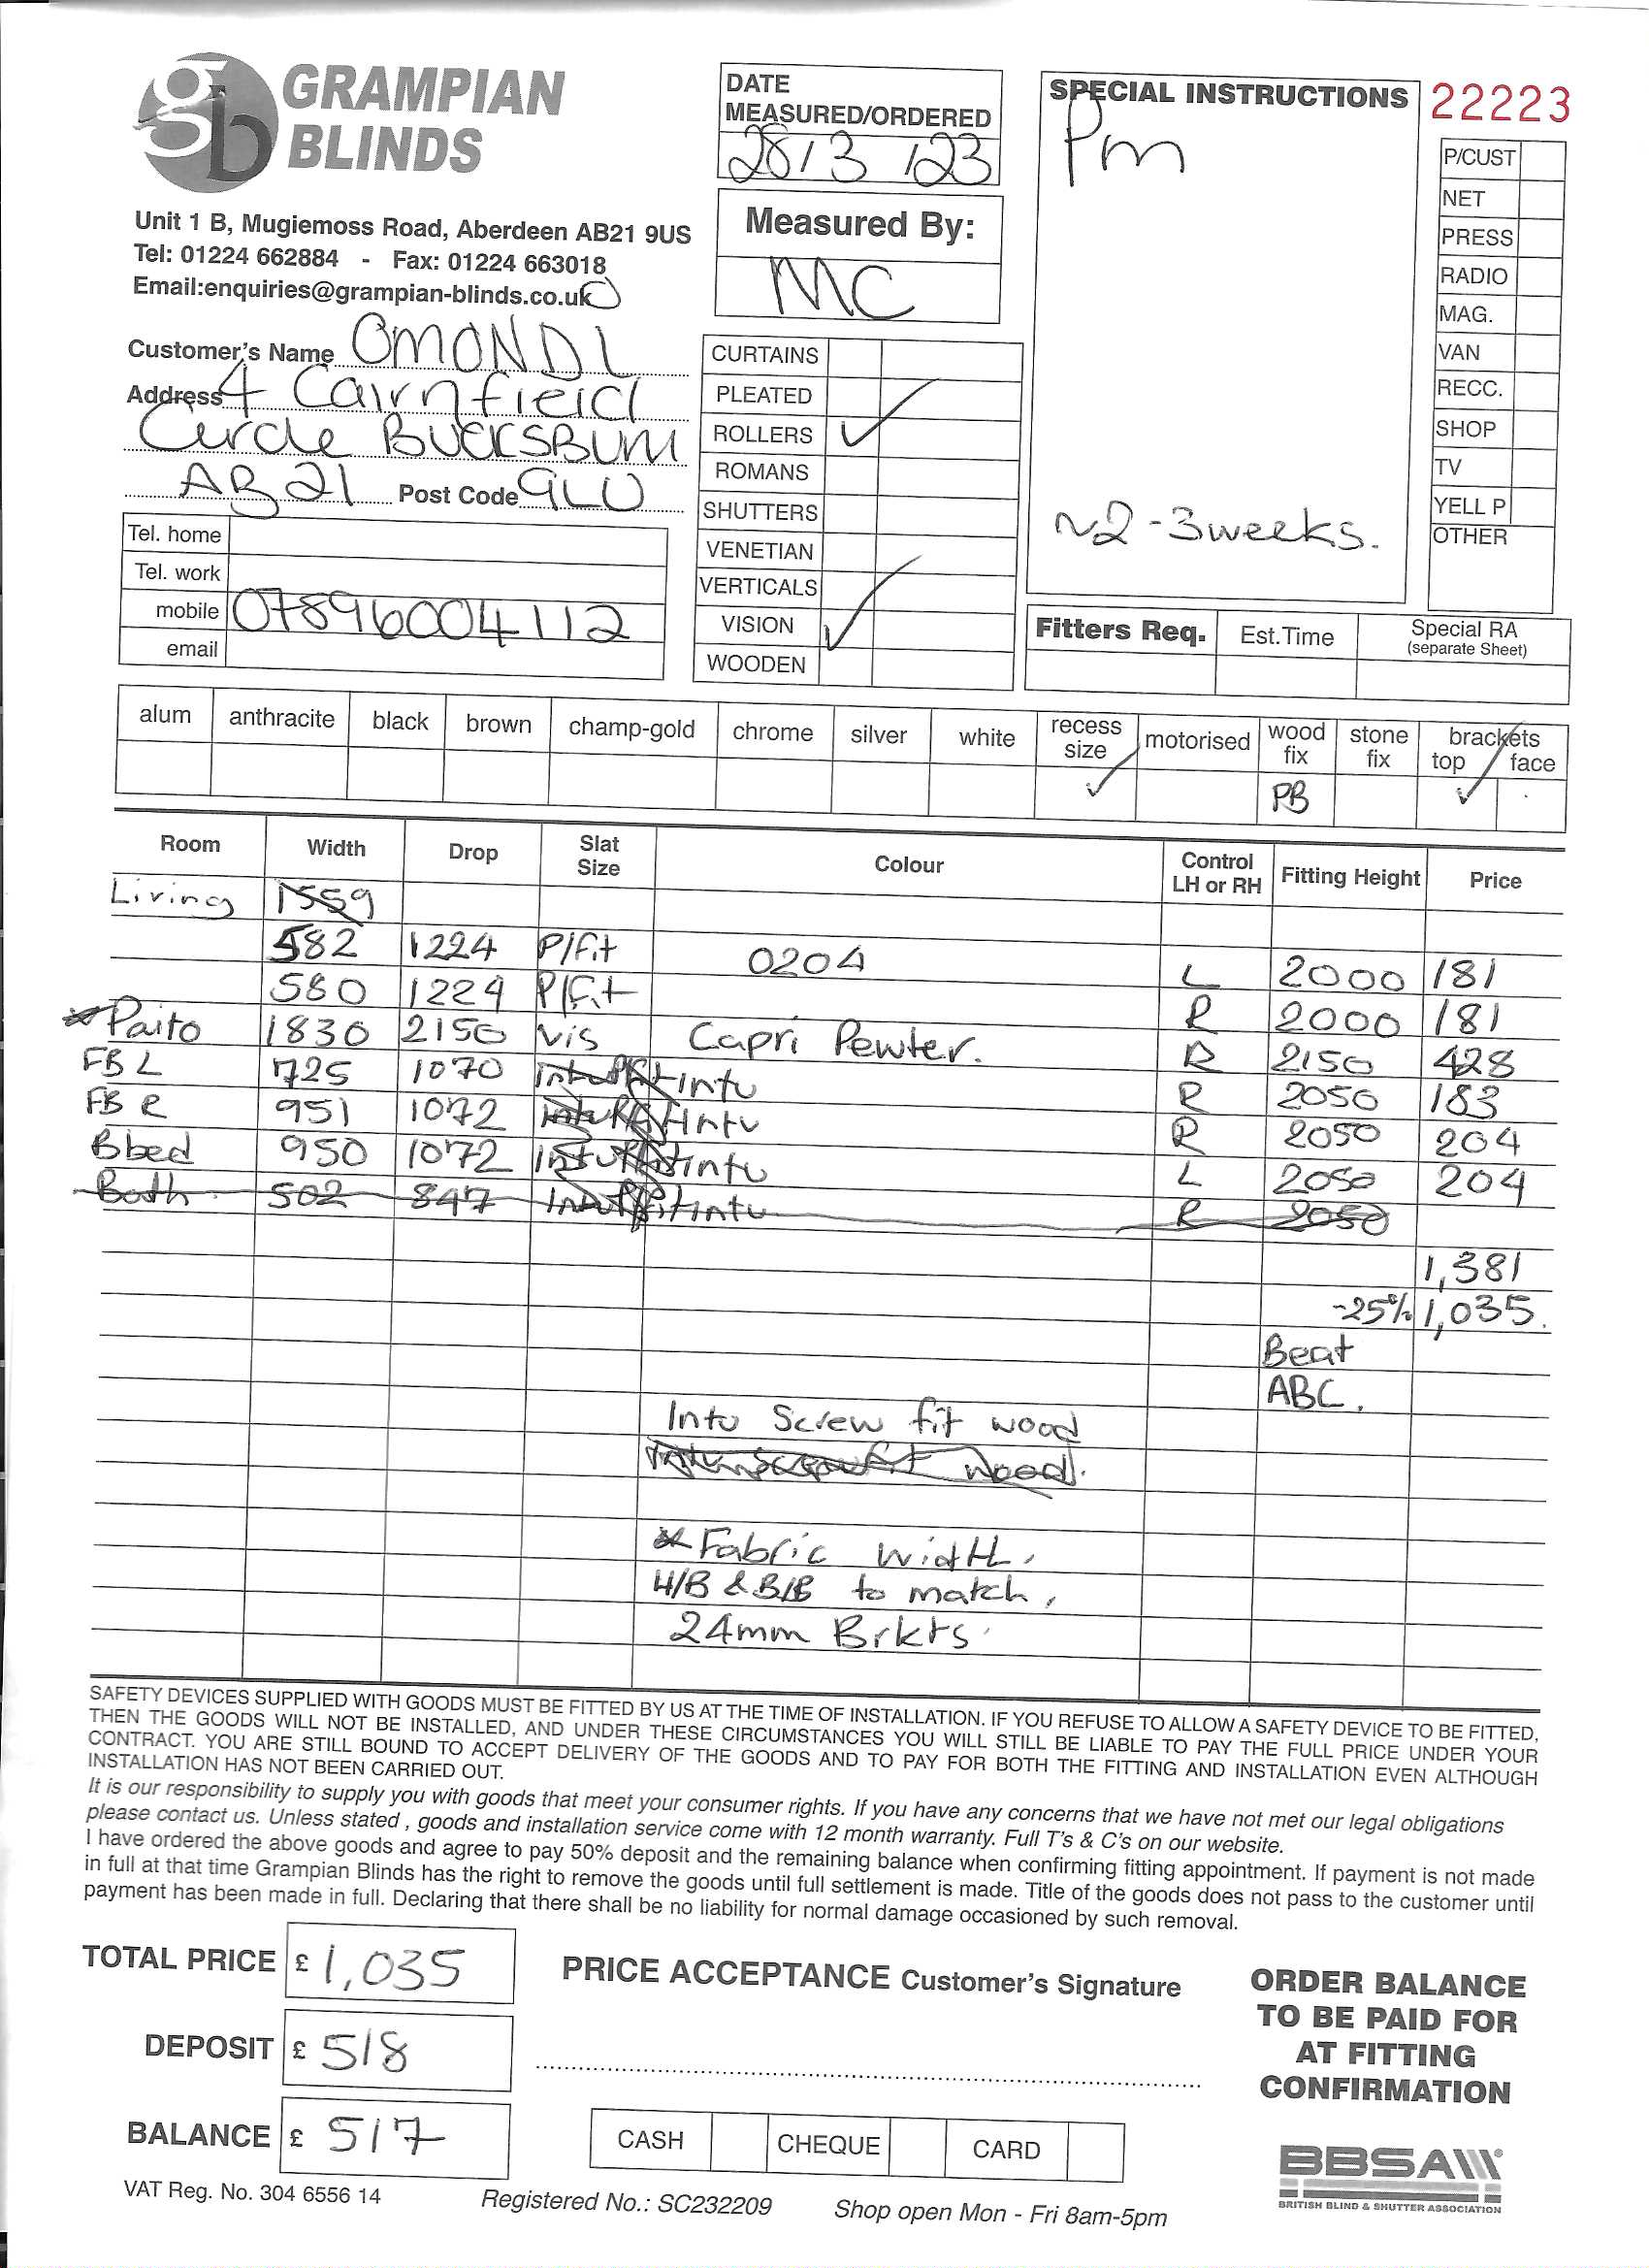 GRAMPIAN
BLINDS
Unit 1 B, Mugiemoss Road, Aberdeen AB21 9US
Tel: 01224 662884 - Fax: 01224 663018
Email:enquiries@grampian-blinds.co.uk
DATE
MEASURED/ORDERED
28/3/23
Measured By:
MC
SPECIAL INSTRUCTIONS
Pm
~2-3weeks.
22223
P/CUST
NET
PRESS
RADIO
MAG.
VAN
RECC.
SHOP
TV
YELL P
OTHER
Customer's Name OMONDI
Address 4 Cairnfield
Circle BUCKSBURN
AB21 Post Code 9LU
Tel. home
Tel. work
mobile 07896004112
email
CURTAINS
PLEATED
ROLLERS ✓
ROMANS
SHUTTERS
VENETIAN
VERTICALS
VISION ✓
WOODEN
Fitters Req. Est.Time Special RA
(separate Sheet)
alum anthracite black brown champ-gold chrome silver white recess size motorised wood fix stone fix brackets top face
✓ PB ✓
Room Width Drop Slat Size Colour Control LH or RH Fitting Height Price
Living 1559
582 1224 P/Fit 0204 L 2000 181
580 1224 P/Fit R 2000 181
* Paito 1830 2150 Vis Capri Pewter. R 2150 428
FB L 725 1070 Intu R 2050 183
FB R 951 1072 Intu R 2050 204
Bbed 950 1072 Intu L 2050 204
Bath 502 847 Intu R 2050
1,381
-25% 1,035.
Beat
ABC.
Intu Screw fit wood
wood.
* Fabric width.
H/B & B/B to match.
24mm Brkts
SAFETY DEVICES SUPPLIED WITH GOODS MUST BE FITTED BY US AT THE TIME OF INSTALLATION. IF YOU REFUSE TO ALLOW A SAFETY DEVICE TO BE FITTED,
THEN THE GOODS WILL NOT BE INSTALLED, AND UNDER THESE CIRCUMSTANCES YOU WILL STILL BE LIABLE TO PAY THE FULL PRICE UNDER YOUR
CONTRACT. YOU ARE STILL BOUND TO ACCEPT DELIVERY OF THE GOODS AND TO PAY FOR BOTH THE FITTING AND INSTALLATION EVEN ALTHOUGH
INSTALLATION HAS NOT BEEN CARRIED OUT.
It is our responsibility to supply you with goods that meet your consumer rights. If you have any concerns that we have not met our legal obligations
please contact us. Unless stated , goods and installation service come with 12 month warranty. Full T's & C's on our website.
I have ordered the above goods and agree to pay 50% deposit and the remaining balance when confirming fitting appointment. If payment is not made
in full at that time Grampian Blinds has the right to remove the goods until full settlement is made. Title of the goods does not pass to the customer until
payment has been made in full. Declaring that there shall be no liability for normal damage occasioned by such removal.
TOTAL PRICE £ 1,035
DEPOSIT £ 518
BALANCE £ 517
PRICE ACCEPTANCE Customer's Signature
CASH CHEQUE CARD
ORDER BALANCE
TO BE PAID FOR
AT FITTING
CONFIRMATION
BBSA
BRITISH BLIND & SHUTTER ASSOCIATION
VAT Reg. No. 304 6556 14
Registered No.: SC232209
Shop open Mon - Fri 8am-5pm